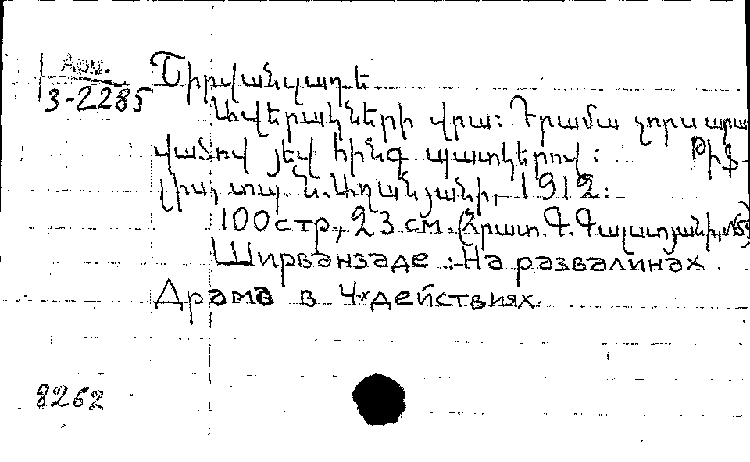 Арм.
3-2285
Շիրվանզադե
Ավերակների վրա։ Դրամա չորս արար
վածով յեվ հինգ պատկերով։ Թիֆ-
լիս, տպ. Ն. Աղանյանի, 1912։
100 стр., 23 см. (Հրատ. Գ. Գալստյանի, №5)
Ширванзаде :- На развалинах.
Драма в 4х действиях.
8262